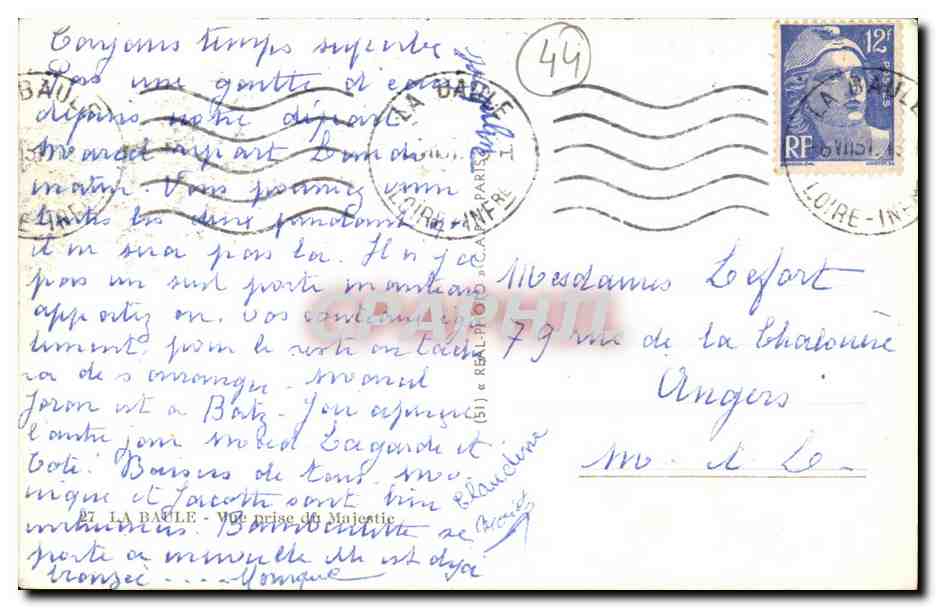 Toujours temps superbe
Pas une goutte d'eau
depuis notre départ.
Marcel repart Lundi
matin. Vous pouvez venir
toutes les deux pendant qu'
il ne sera pas la. Il n'y a
pas un seul porte manteau
apportez en. Vos couteaux ega
lement, pour le reste on tache
ra de s'arranger. Marcel
Joran est a Batz. J'ai aperçu
l'autre jour Lagarde et
Coté. Baisers de tous. Mo
nique et Jacotte sont bien
se
porte a merveille elle est déja
bronzée .... Monique
Claudine
44
12F
POSTES
RF
LA BAULE
LOIRE-INFRE
LA BAULE
LOIRE-INFRE
BAULE
Mesdames Lefort
79 rue de la Chalouère
Angers
M. et L.
(51) « REAL-PHOTO » C.A.P. PARIS
27 LA BAULE - Vue prise du Majestic
CPAPHIL